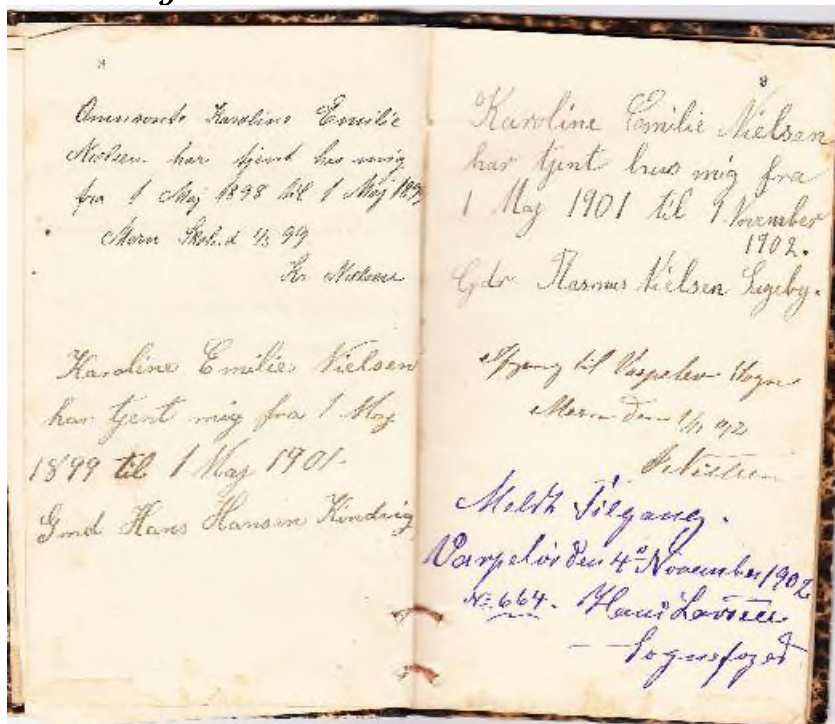 Omnævnte Karoline Emilie
Nielsen har tjent hos mig
fra 1 Maj 1898 til 1 Maj 1899
Mern Skole d 1/5 99
Kr. Nielsen
Karoline Emilie Nielsen
har tjent mig fra 1 Maj
1899 til 1 Maj 1901.
Gmd Hans Hansen Kindvig
Karoline Emilie Nielsen
har tjent hus mig fra
1 Maj 1901 til 1 November
1902.
Gdr Rasmus Nielsen Sageby.
Afgang til Varpelev Sogn
Mern den 1/11 02
Nielsen
Meldt Tilgang.
Varpelev den 4de November 1902
No. 664. Hans Larsen
Sognefoged